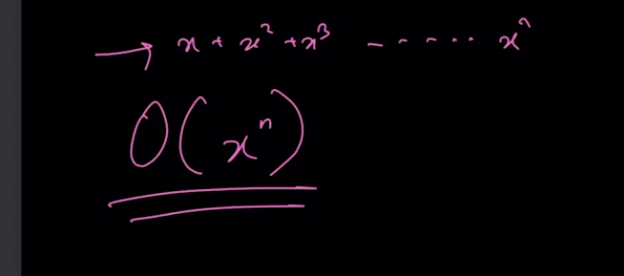 → x + x² + x³ - - - - - · · xⁿ
O(xⁿ)